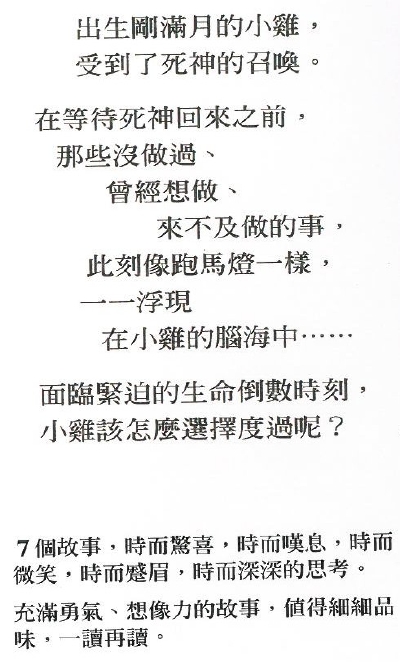 出生剛滿月的小雞，
受到了死神的召喚。
在等待死神回來之前，
那些沒做過、
曾經想做、
來不及做的事，
此刻像跑馬燈一樣，
一一浮現
在小雞的腦海中……
面臨緊迫的生命倒數時刻，
小雞該怎麼選擇度過呢？
7個故事，時而驚喜，時而嘆息，時而
微笑，時而蹙眉，時而深深的思考。
充滿勇氣、想像力的故事，值得細細品
味，一讀再讀。